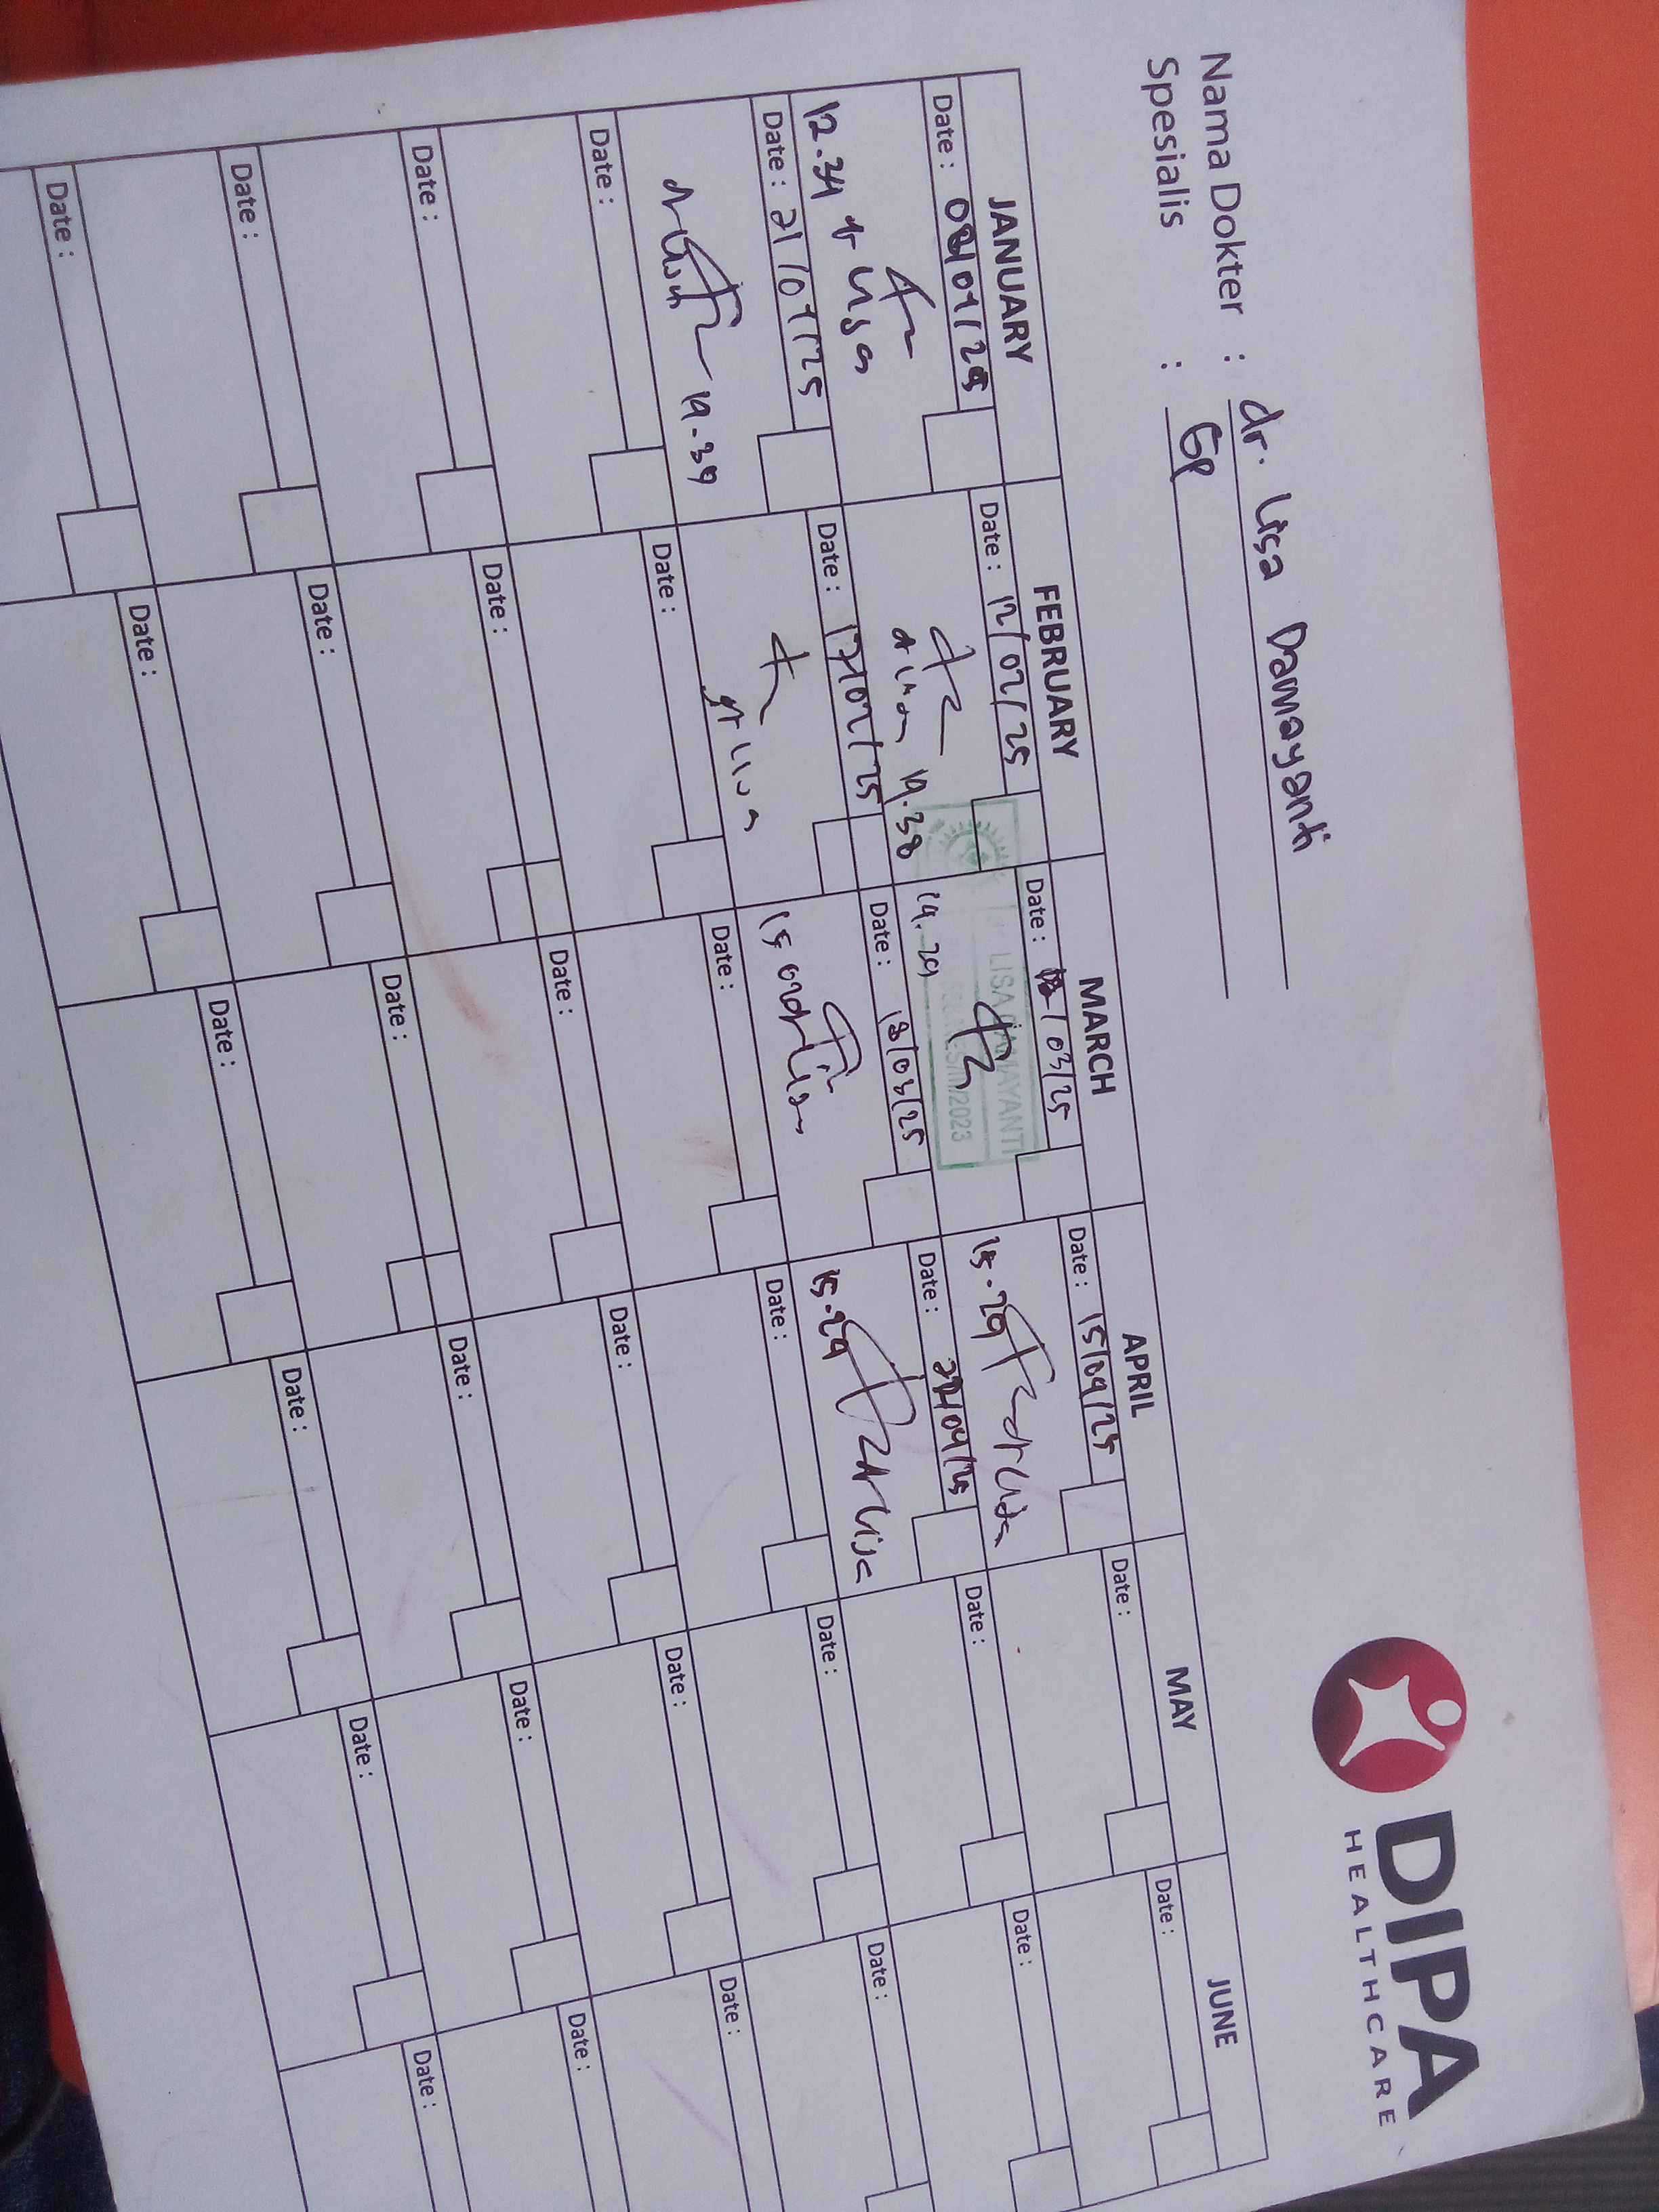 DIPA
HEALTHCARE
Nama Dokter : dr. Lisa Damayanti
Spesialis : GP
JANUARY FEBRUARY MARCH APRIL MAY JUNE
Date : /01/25 Date : 12/02/25 Date : /03/25 Date : 15/04/25 Date : Date :
12.34 dr Lisa
dr Lisa 14.38
14.29
LISA DAMAYANTI
/2023
15.29 dr Lisa
Date : 21/01/25 Date : 17/02/25 Date : 18/03/25 Date : 22/04/25 Date : Date :
dr Lisa 14.39
dr Lisa
dr Lisa
15.24 dr Lisa
Date : Date : Date : Date : Date : Date :
Date : Date : Date : Date : Date : Date :
Date : Date : Date : Date : Date : Date :
Date : Date : Date : Date : Date : Date :